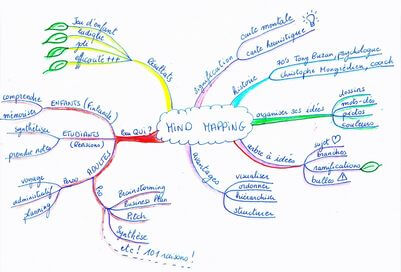 MIND MAPPING
signification
carte mentale
carte heuristique
histoire
70's Tony Buzan, psychologue
christophe Mongrédien, coach
organiser ses idées
dessins
mots-clés
photos
couleurs
arbre à idées
sujet
branches
ramifications
bulles
avantages
visualiser
ordonner
hiérarchiser
structurer
Résultats
Jeu d'enfant
ludique
joli
efficacité +++
Pour QUI ?
ENFANTS (Finlande)
comprendre
mémoriser
ETUDIANTS
(Révisions)
synthétiser
prendre notes
ADULTES
Perso
voyage
administratif
planning
Pro
Brainstorming
Business Plan
Pitch
Synthèse
etc! 101 raisons!